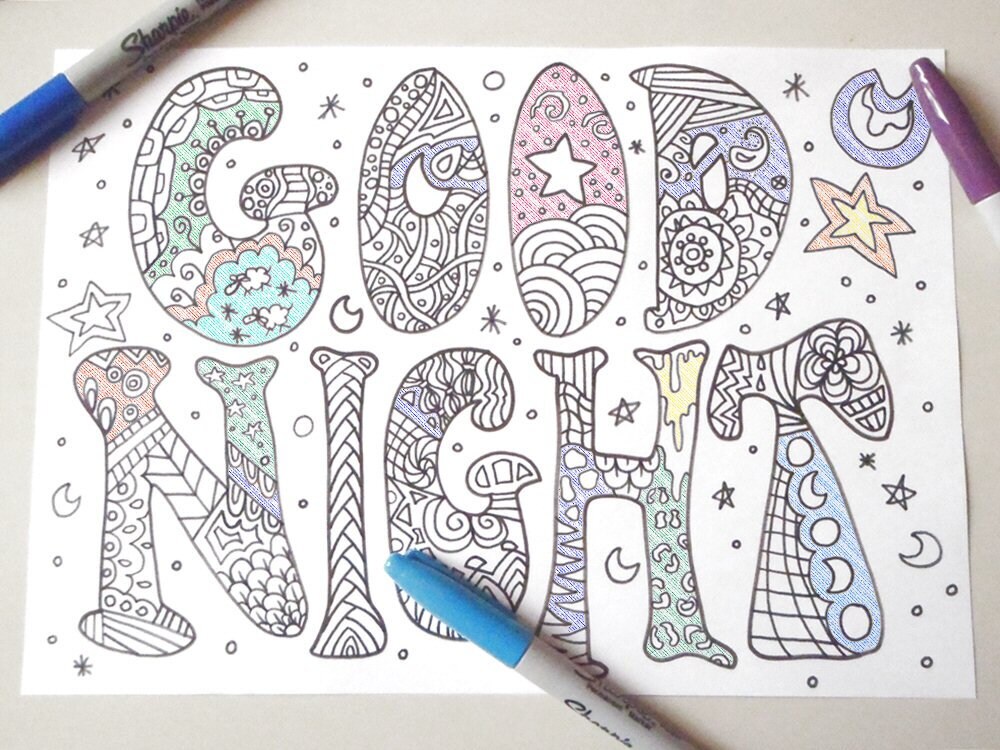 Sharpie
GOOD
NIGHT
Sharpie